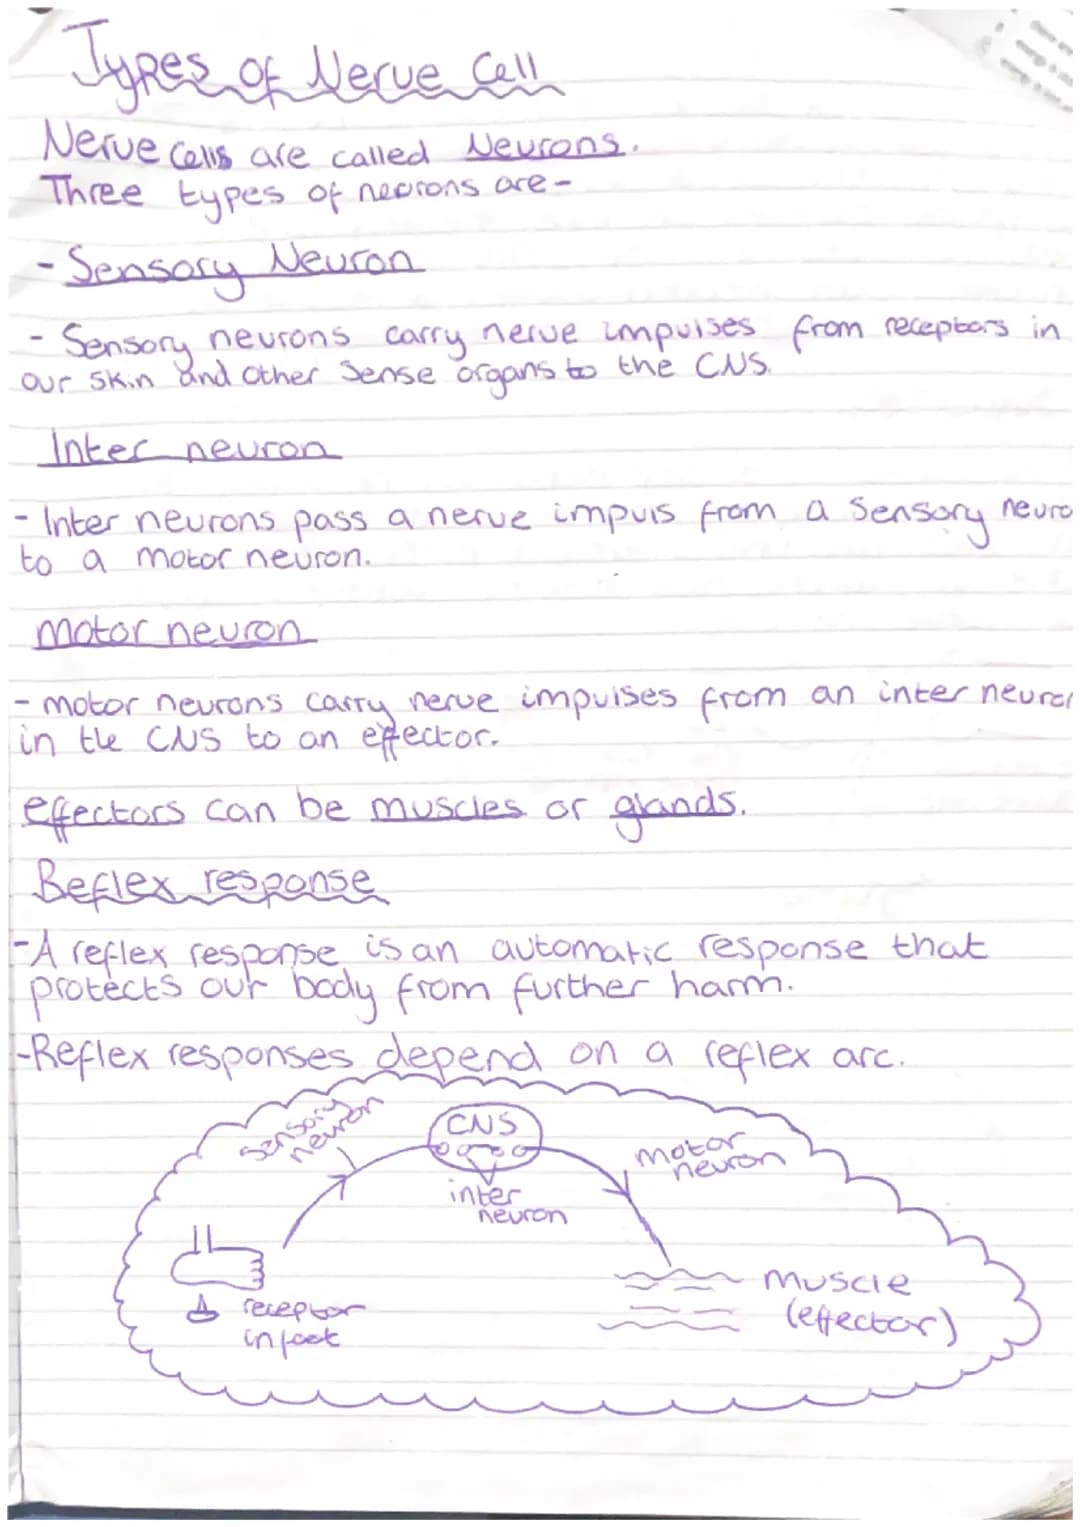 Types of Nerve Cell
Nerve Cells are called Neurons.
Three types of neurons are -
- Sensory Neuron
- Sensory neurons carry nerve impulses from receptors in
our skin and other sense organs to the CNS.
Inter neuron
- Inter neurons pass a nerve impuls from a Sensory neuro
to a motor neuron.
motor neuron
- motor neurons carry nerve impulses from an inter neuron
in the CNS to an effector.
effectors can be muscles or glands.
Reflex response
- A reflex response is an automatic response that
protects our body from further harm.
- Reflex responses depend on a reflex arc.
Sensory
neuron
CNS
motor
neuron
inter
neuron
receptor
in foot
muscle
(effector)